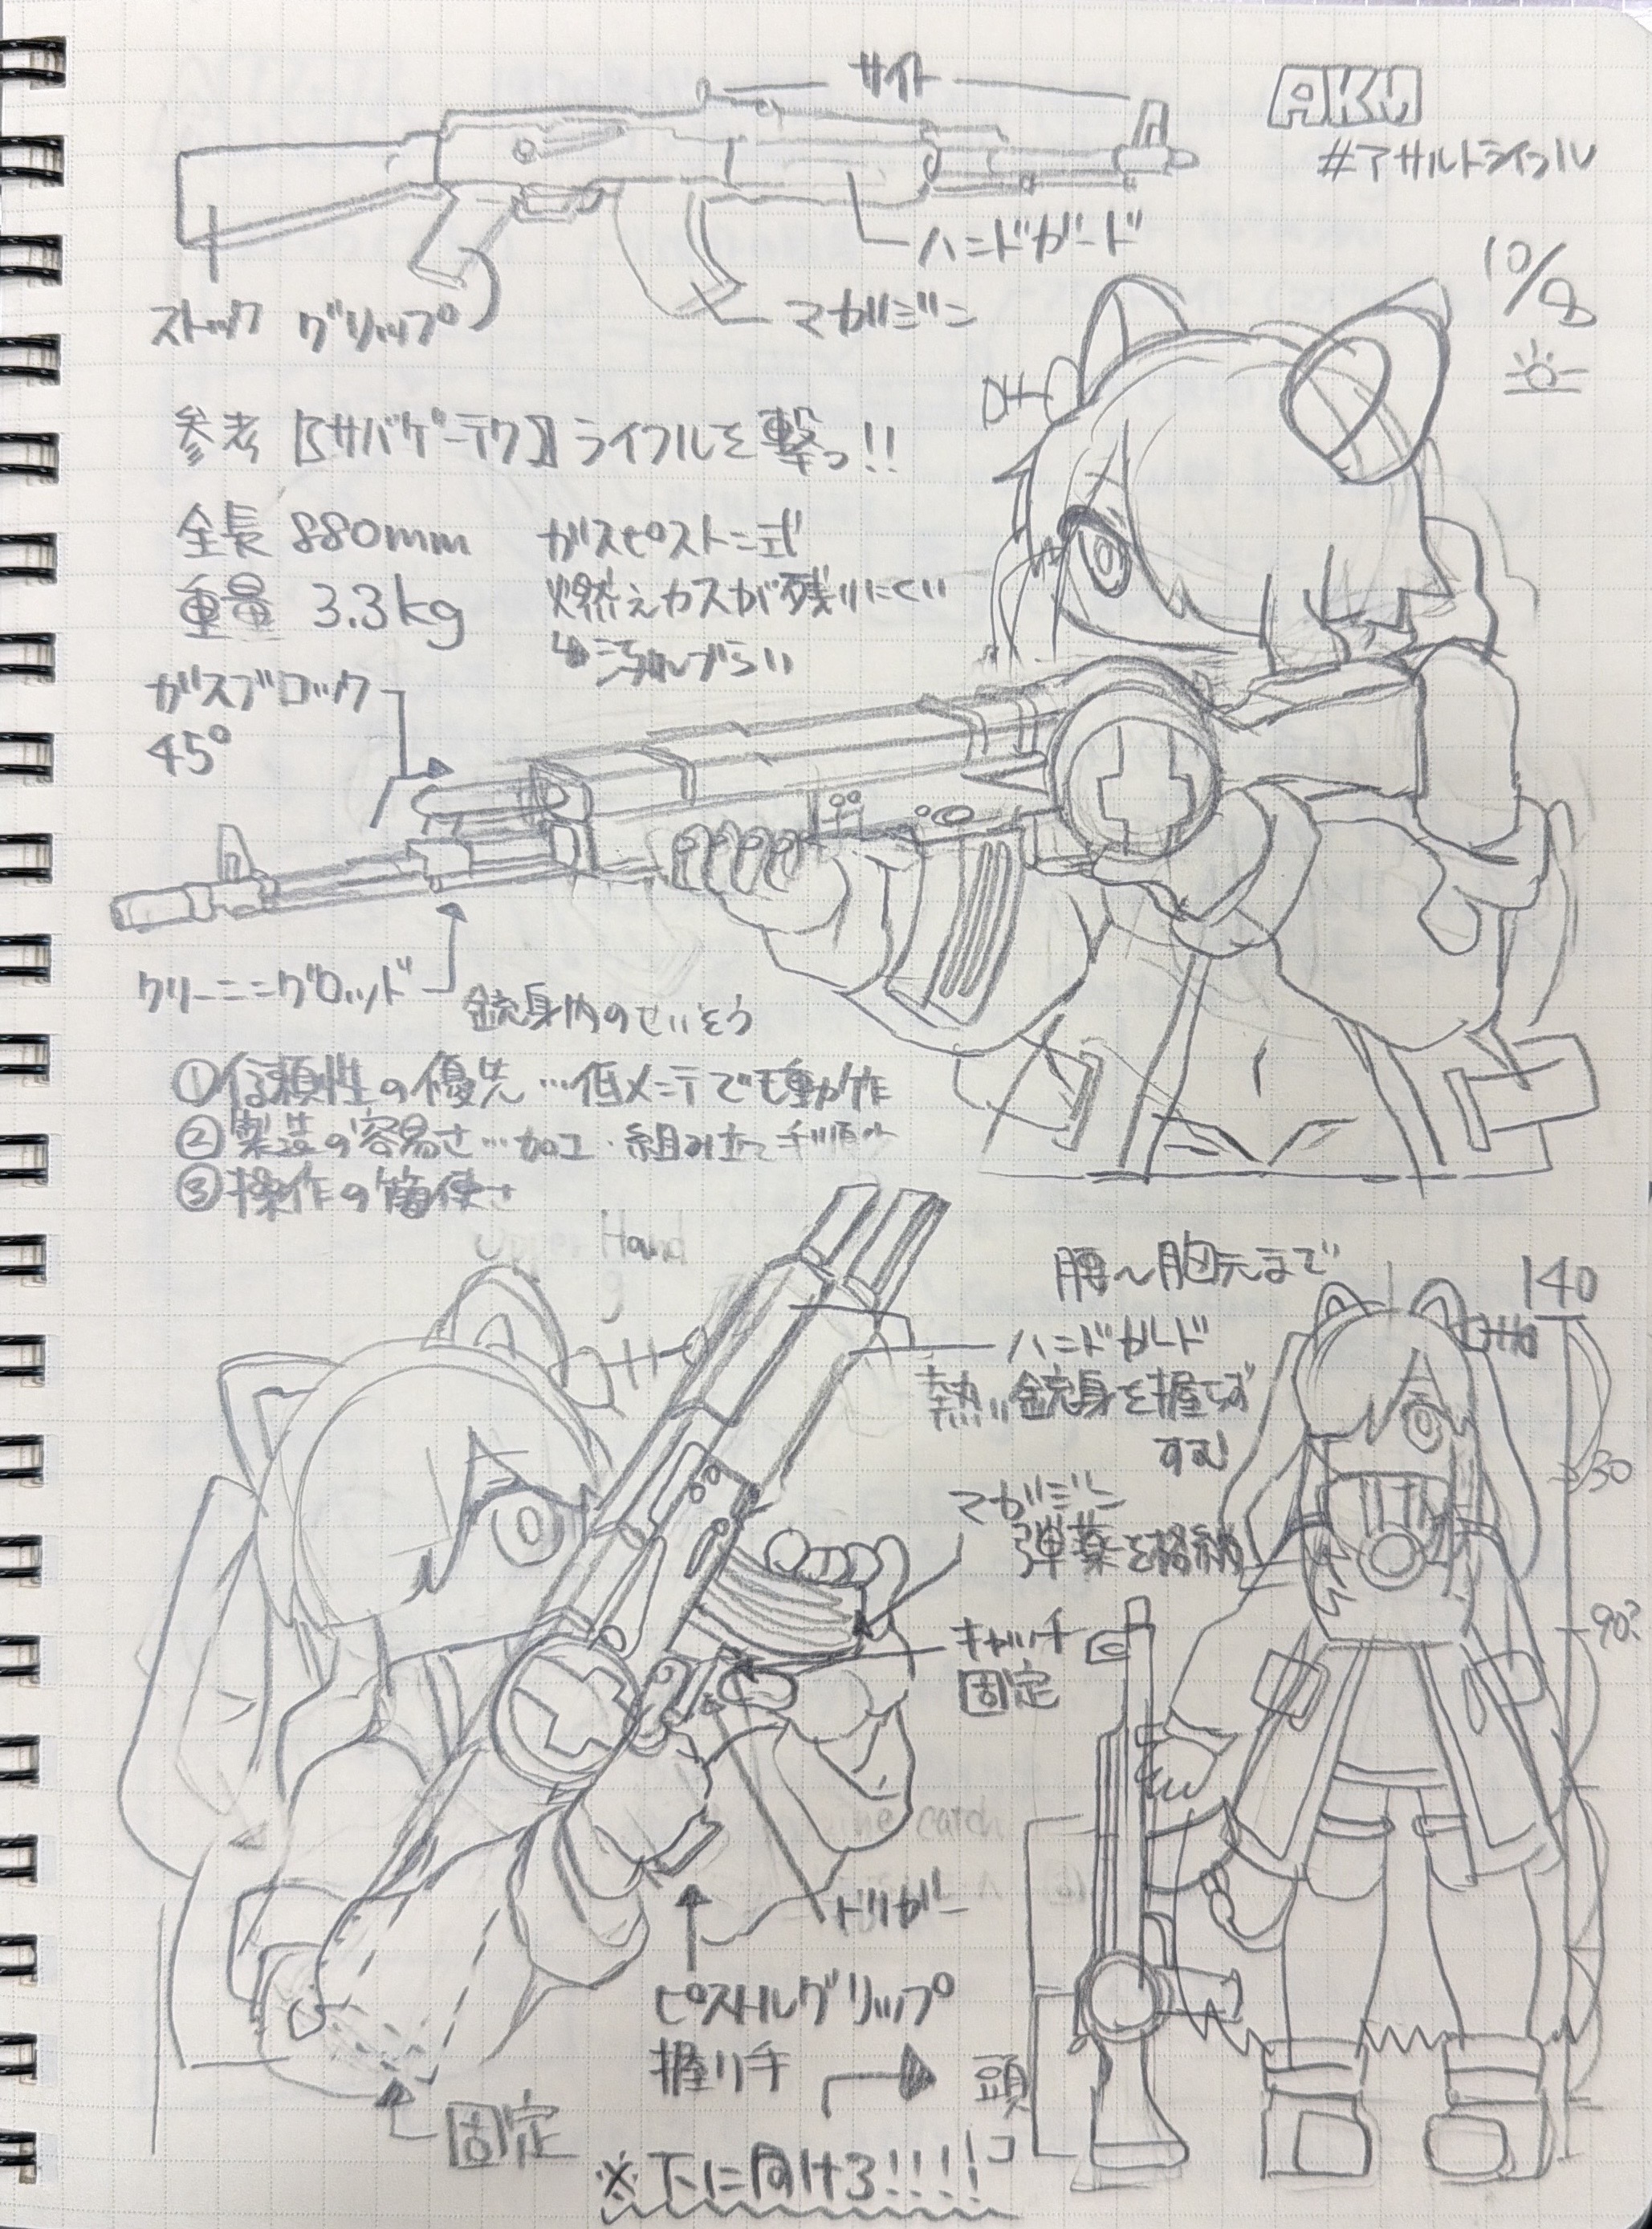 AKM
#アサルトライフル
10/8
サイト
ハンドガード
ストック グリップ
マガジン
参考【サバゲーテク】ライフルを撃つ!!
全長 880mm
重量 3.3kg
ガスピストン式
燃えカスが残りにくい
ガスブロック
45°
クリーニングロッド
銃身内のせいそう
①信頼性の優先…低メンテでも動作
②製造の容易さ…加工・組み立て
③操作の簡便さ
腰〜胸元まで
140
ハンドガード
熱い銃身を握らず
すむ
30
マガジン
弾薬を格納
90?
キャッチ
固定
トリガー
ピストルグリップ
握り手
頭
コ
固定
※下に向ける!!!!